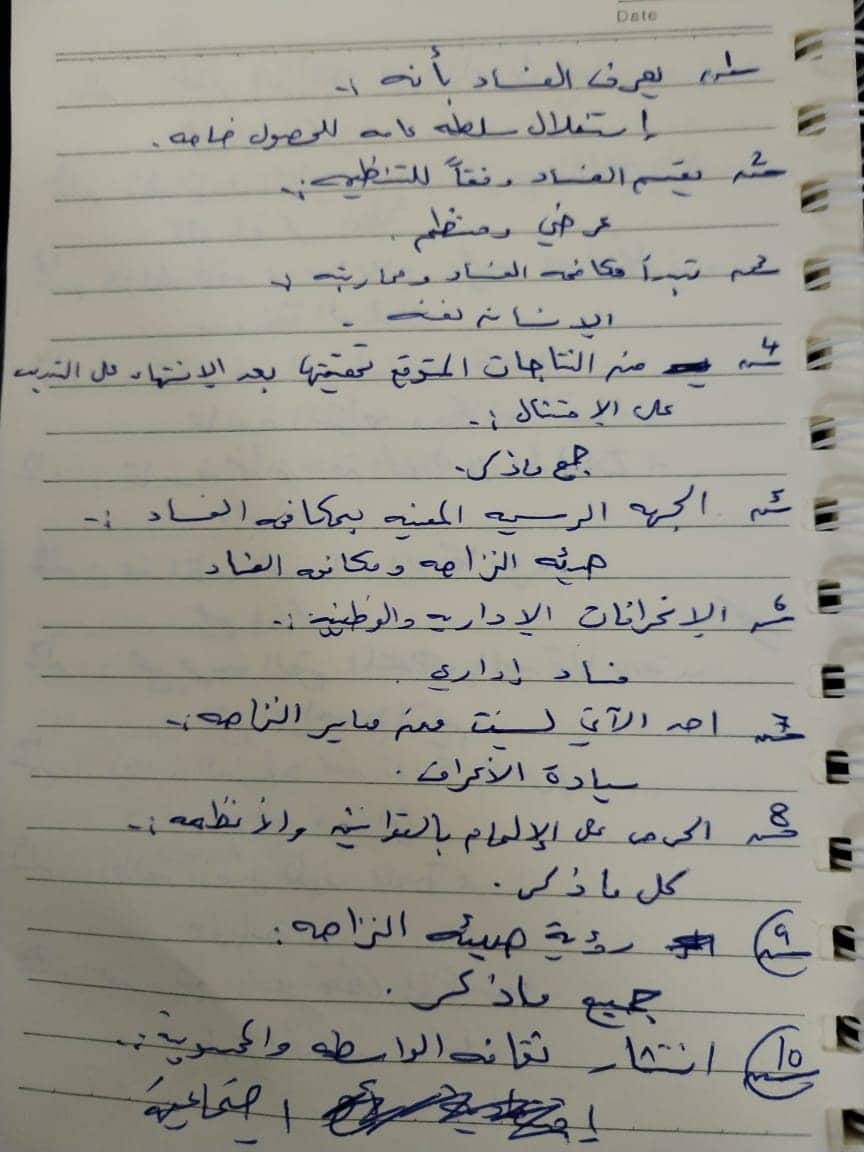 Date
س1 يعرف الفساد بأنه :-
إستغلال سلطة عامه للحصول خاصه .
س2 يقسم الفساد وفقاً للتنظيم :-
عرضي ومنظم .
س3 تبدأ مكافحه الفساد ومحاربته
الإنسان نفسه .
س4 من النتاجات المتوقع تحقيقها بعد الإنتهاء من التدريب
على الإمتثال :-
جمع ماذكر.
س5 الجهه الرسميه المعنيه بمكافحه الفساد :-
هيئه النزاهه ومكافحه الفساد
س6 الإنحرافات الإداريه والوظيفية :-
فساد إداري .
س7 احد الآتي ليست من معاير النزاهه :-
سيادة الأعراف .
س8 الحرص على الإلمام بالقوانين والأنظمه :-
كل ما ذكر .
س9 رؤية هيئه النزاهه :
جميع ماذكر .
س10 انتشار ثقافه الواسطه والمحسوبية :-
إجتماعية